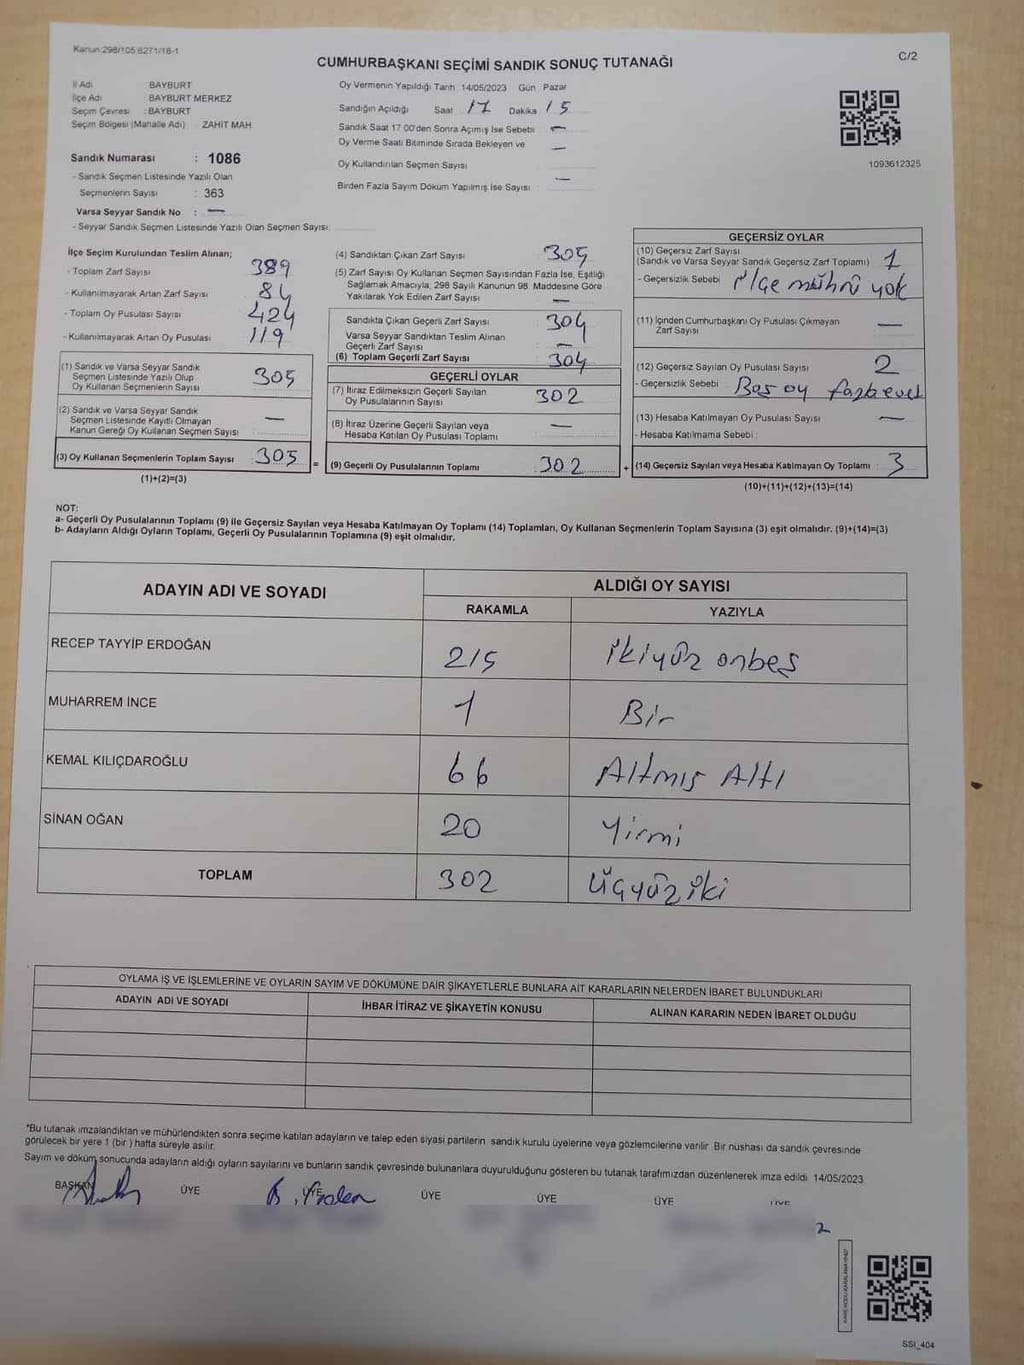 Kanun:298/105:6271/18-1
C/2
CUMHURBAŞKANI SEÇİMİ SANDIK SONUÇ TUTANAĞI
İl Adı BAYBURT
İlçe Adı BAYBURT MERKEZ
Seçim Çevresi : BAYBURT
Seçim Bölgesi (Mahalle Adı) ZAHİT MAH
Sandık Numarası : 1086
- Sandık Seçmen Listesinde Yazılı Olan
Seçmenlerin Sayısı : 363
Varsa Seyyar Sandık No : —
- Seyyar Sandık Seçmen Listesinde Yazılı Olan Seçmen Sayısı:
Oy Vermenin Yapıldığı Tarih : 14/05/2023 Gün : Pazar
Sandığın Açıldığı Saat 17 Dakika 15
Sandık Saat 17:00'den Sonra Açımış İse Sebebi : —
Oy Verme Saati Bitiminde Sırada Bekleyen ve —
Oy Kullandırılan Seçmen Sayısı
Birden Fazla Sayım Döküm Yapılmış İse Sayısı : —
1093612325
İlçe Seçim Kurulundan Teslim Alınan;
- Toplam Zarf Sayısı 389
- Kullanılmayarak Artan Zarf Sayısı : 84
- Toplam Oy Pusulası Sayısı 424
- Kullanılmayarak Artan Oy Pusulası : 119
(1) Sandık ve Varsa Seyyar Sandık
Seçmen Listesinde Yazılı Olup
Oy Kullanan Seçmenlerin Sayısı 305
(2) Sandık ve Varsa Seyyar Sandık
Seçmen Listesinde Kayıtlı Olmayan
Kanun Gereği Oy Kullanan Seçmen Sayısı : —
(3) Oy Kullanan Seçmenlerin Toplam Sayısı 305
(1)+(2)=(3)
(4) Sandıktan Çıkan Zarf Sayısı : 305
(5) Zarf Sayısı Oy Kullanan Seçmen Sayısından Fazla İse, Eşitliği
Sağlamak Amacıyla, 298 Sayılı Kanunun 98. Maddesine Göre
Yakılarak Yok Edilen Zarf Sayısı : —
Sandıkta Çıkan Geçerli Zarf Sayısı : 304
Varsa Seyyar Sandıktan Teslim Alınan
Geçerli Zarf Sayısı : —
(6) Toplam Geçerli Zarf Sayısı : 304
GEÇERLİ OYLAR
(7) İtiraz Edilmeksizin Geçerli Sayılan
Oy Pusulalarının Sayısı 302
(8) İtiraz Üzerine Geçerli Sayılan veya
Hesaba Katılan Oy Pusulası Toplamı : —
= (9) Geçerli Oy Pusulalarının Toplamı : 302
GEÇERSİZ OYLAR
(10) Geçersiz Zarf Sayısı
(Sandık ve Varsa Seyyar Sandık Geçersiz Zarf Toplamı) : 1
- Geçersizlik Sebebi : İlçe mührü yok
(11) İçinden Cumhurbaşkanı Oy Pusulası Çıkmayan
Zarf Sayısı : —
(12) Geçersiz Sayılan Oy Pusulası Sayısı : 2
- Geçersizlik Sebebi : Boş oy
(13) Hesaba Katılmayan Oy Pusulası Sayısı : —
- Hesaba Katılmama Sebebi :
+ (14) Geçersiz Sayılan veya Hesaba Katılmayan Oy Toplamı : 3
(10)+(11)+(12)+(13)=(14)
NOT:
a- Geçerli Oy Pusulalarının Toplamı (9) ile Geçersiz Sayılan veya Hesaba Katılmayan Oy Toplamı (14) Toplamları, Oy Kullanan Seçmenlerin Toplam Sayısına (3) eşit olmalıdır. (9)+(14)=(3)
b- Adayların Aldığı Oyların Toplamı, Geçerli Oy Pusulalarının Toplamına (9) eşit olmalıdır.
ADAYIN ADI VE SOYADI
ALDIĞI OY SAYISI
RAKAMLA YAZIYLA
RECEP TAYYİP ERDOĞAN 215 İkiyüz onbeş
MUHARREM İNCE 1 Bir
KEMAL KILIÇDAROĞLU 66 Altmış Altı
SİNAN OĞAN 20 Yirmi
TOPLAM 302 Üçyüz iki
OYLAMA İŞ VE İŞLEMLERİNE VE OYLARIN SAYIM VE DÖKÜMÜNE DAİR ŞİKAYETLERLE BUNLARA AİT KARARLARIN NELERDEN İBARET BULUNDUKLARI
ADAYIN ADI VE SOYADI
İHBAR İTİRAZ VE ŞİKAYETİN KONUSU
ALINAN KARARIN NEDEN İBARET OLDUĞU
*Bu tutanak imzalandıktan ve mühürlendikten sonra seçime katılan adayların ve talep eden siyasi partilerin sandık kurulu üyelerine veya gözlemcilerine verilir. Bir nüshası da sandık çevresinde
görülecek bir yere 1 (bir ) hafta süreyle asılır.
Sayım ve döküm sonucunda adayların aldığı oyların sayılarını ve bunların sandık çevresinde bulunanlara duyurulduğunu gösteren bu tutanak tarafımızdan düzenlenerek imza edildi. 14/05/2023
BAŞKAN ÜYE ÜYE ÜYE ÜYE ÜYE ÜYE
2
SSİ_404